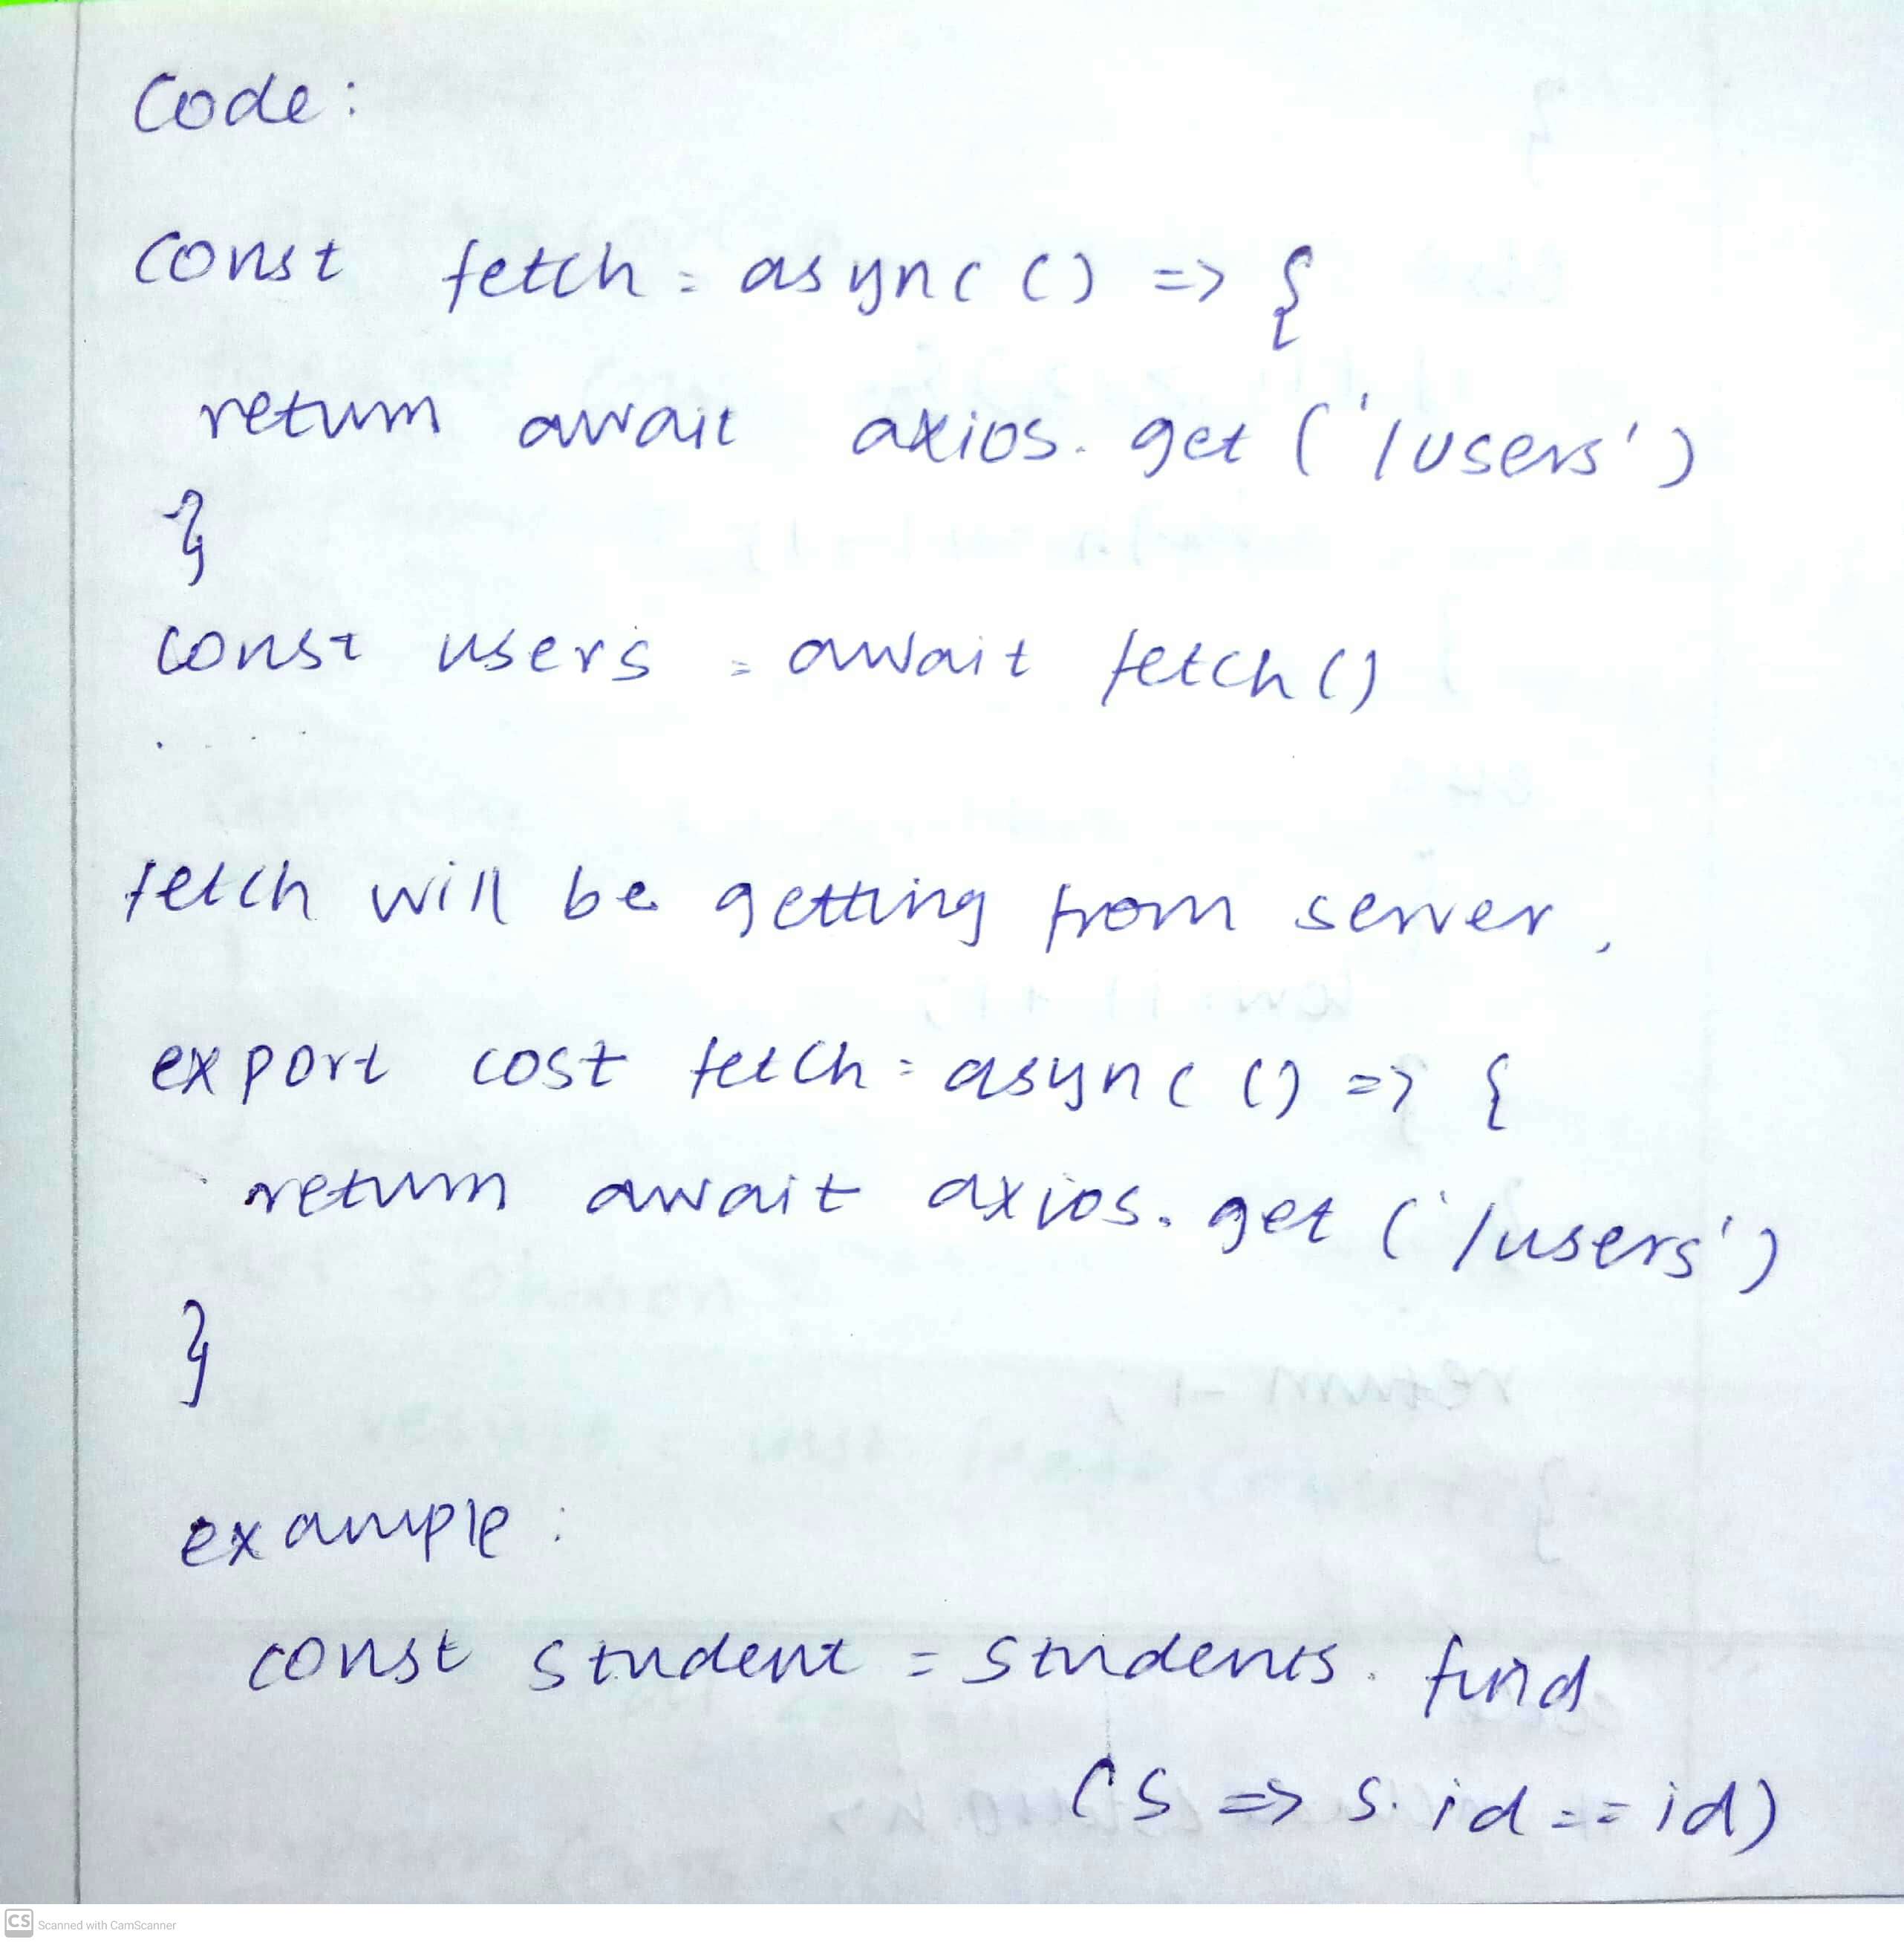 Code:
const fetch = async () => {
return await axios.get('/users')
}
const users = await fetch()
fetch will be getting from server.
export cost fetch = async () => {
return await axios.get('/users')
}
example:
const student = students.find
(s => s.id == id)
CS Scanned with CamScanner